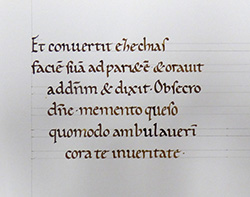 Et convertit ezechias
faciē suā ad parietē & oravit
addn̄m & dixit · Obsecro
dn̄e · memento queso
quomodo ambulaverī
cora te inveritate ·